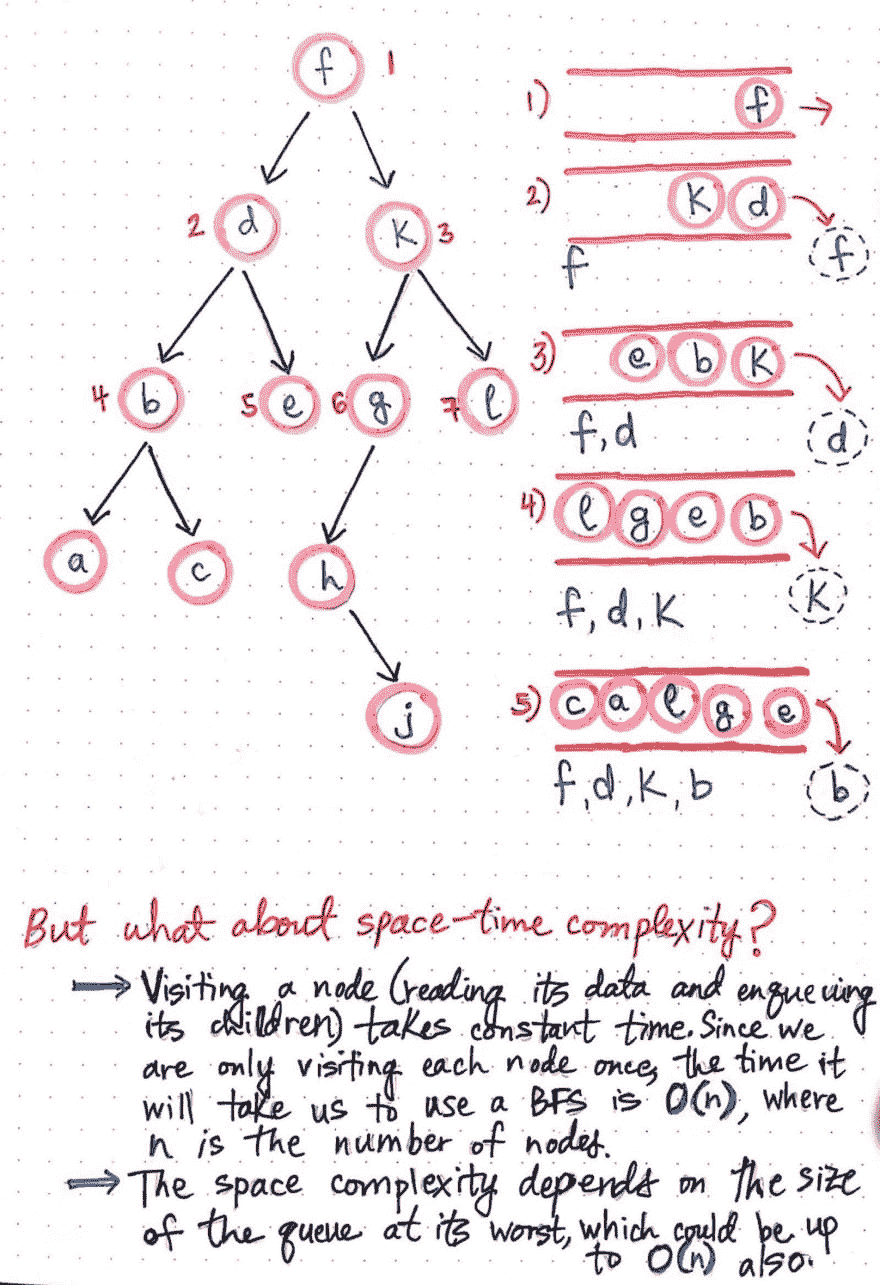 f 1
2 d K 3
4 b 5 e 6 g 7 l
a c h
j
1) f
2) K d
f
f
3) e b K
f, d
d
4) l g e b
f, d, K
K
5) c a l g e
f, d, K, b
b
But what about space-time complexity?
Visiting a node (reading its data and enqueuing
its children) takes constant time. Since we
are only visiting each node once, the time it
will take us to use a BFS is O(n), where
n is the number of nodes.
The space complexity depends on the size
of the queue at its worst, which could be up
to O(n) also.